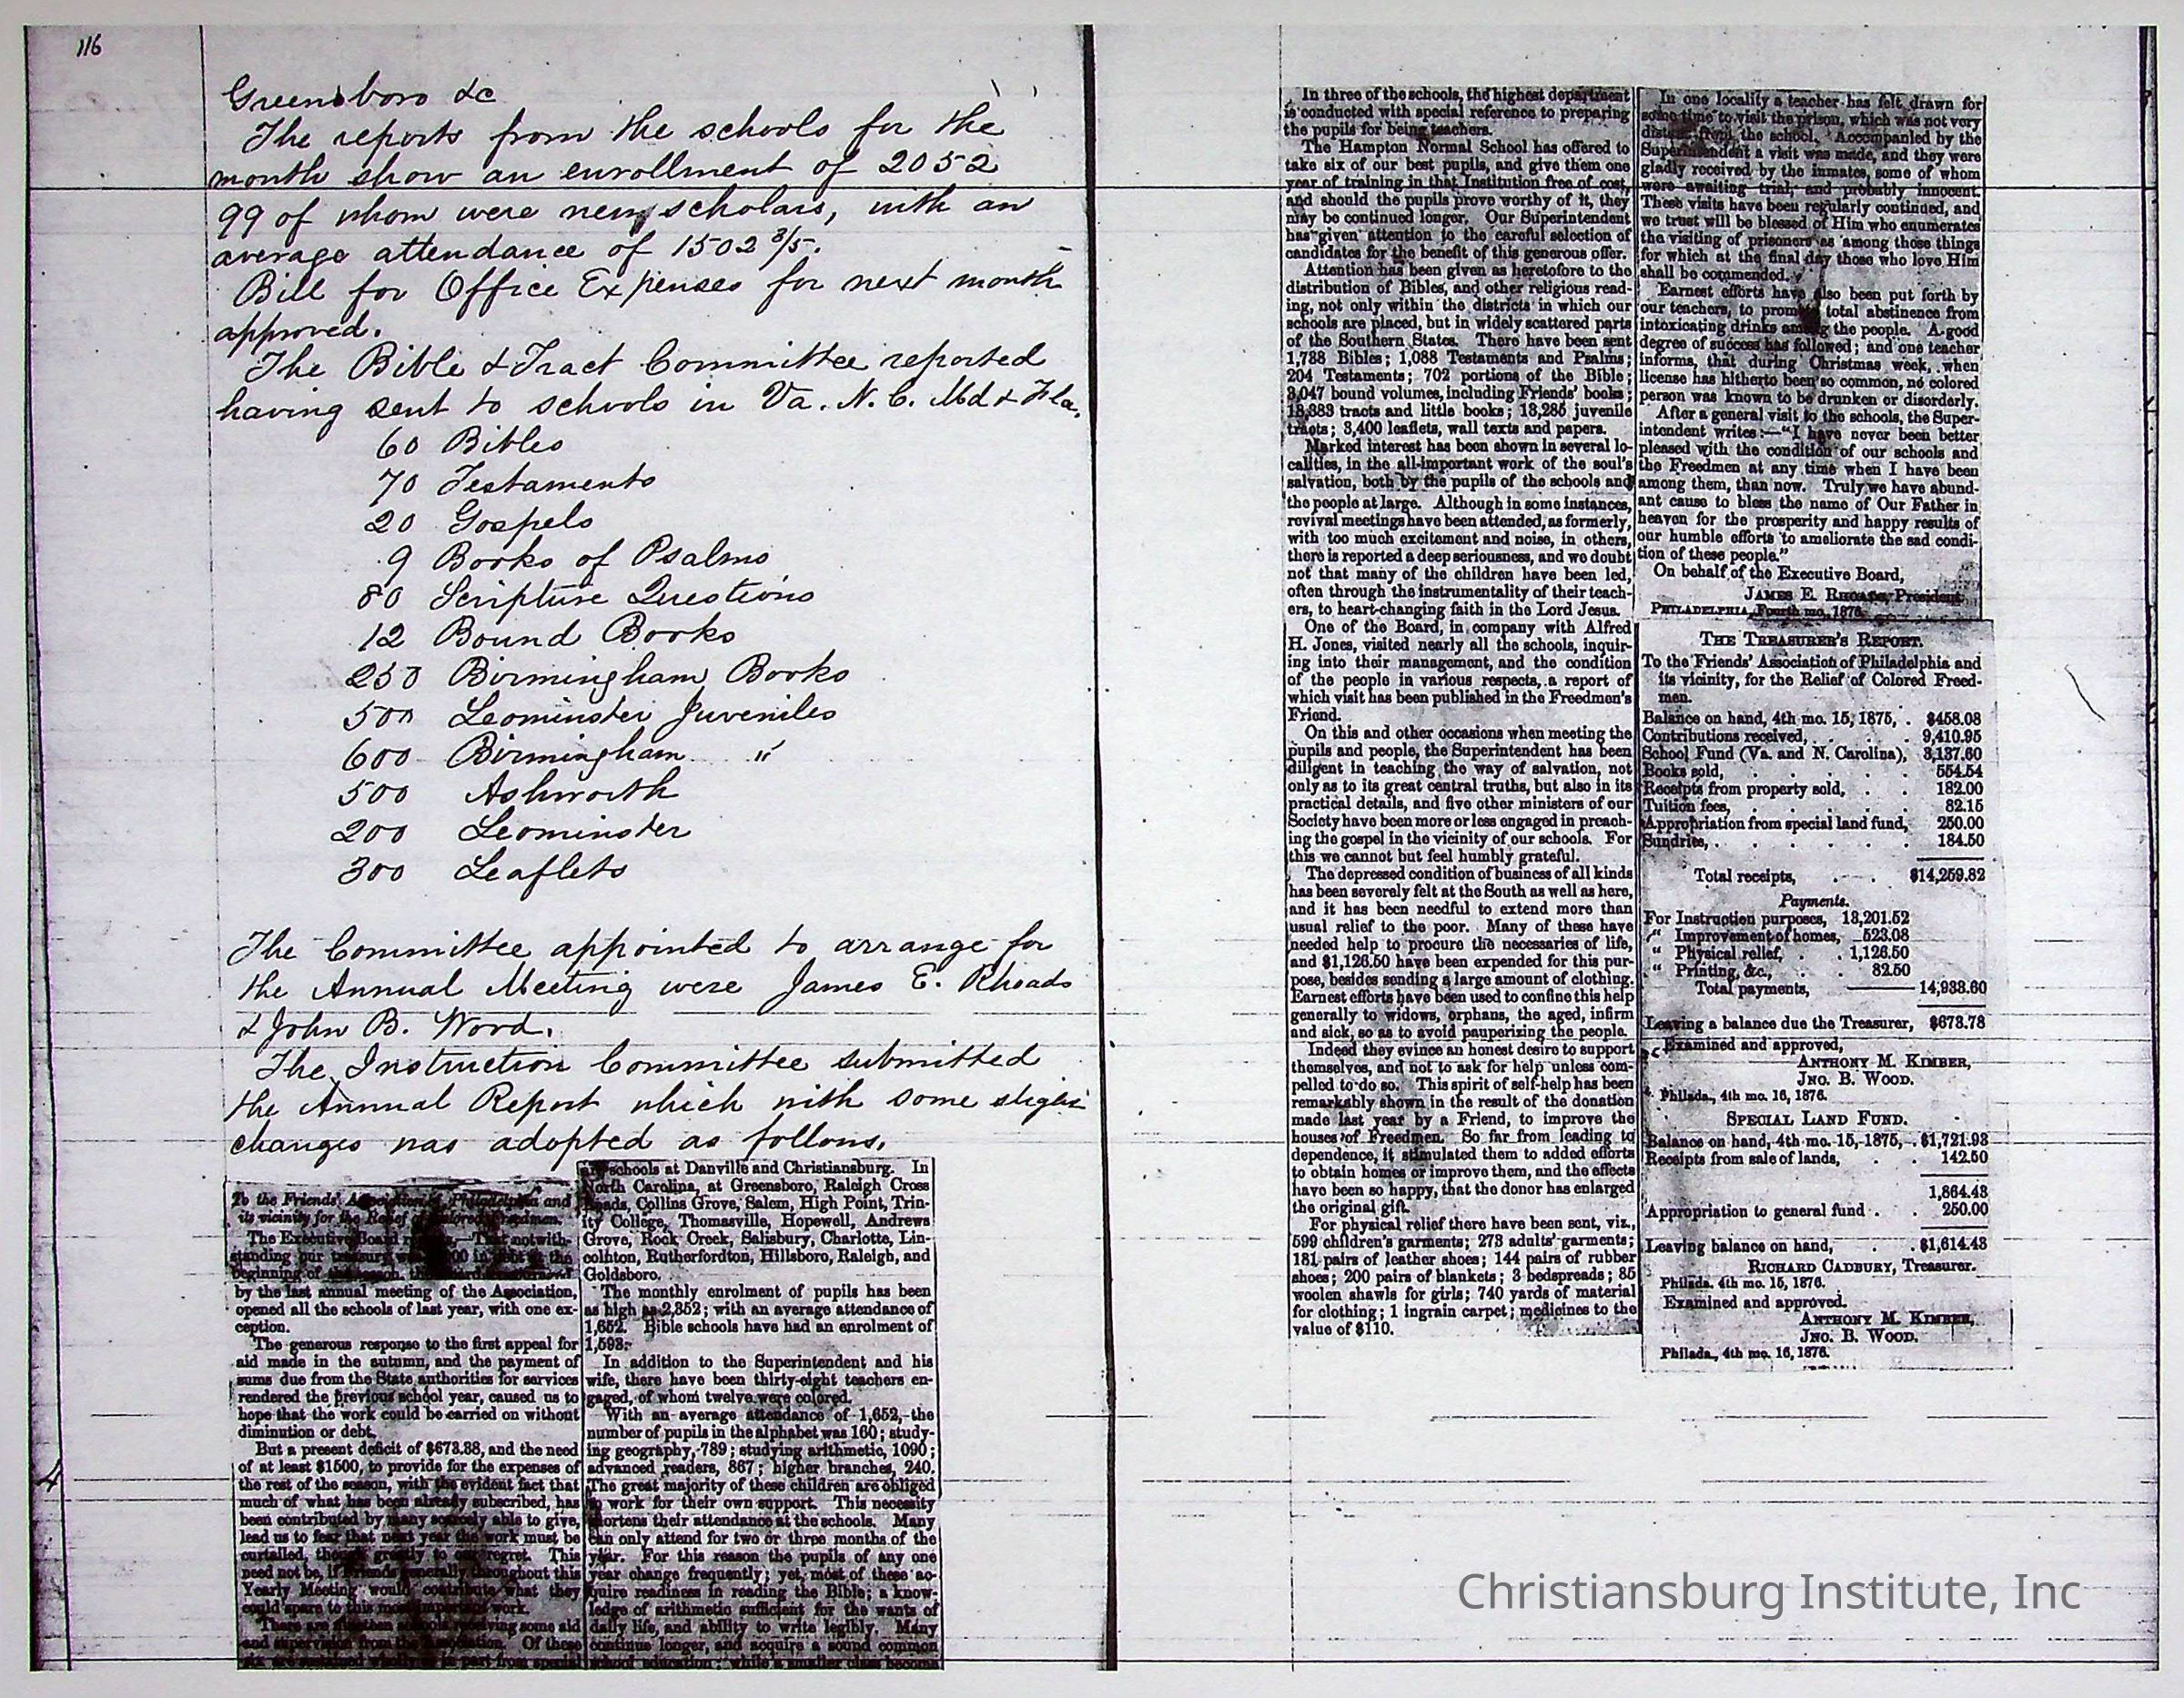 116
Greensboro &c
The reports from the schools for the
month show an enrollment of 2052
99 of whom were new scholars, with an
average attendance of 1502 3/5.
Bill for Office Expenses for next month
approved.
The Bible & Tract Committee reported
having sent to schools in Va. N. C. Md & Fla.
60 Bibles
70 Testaments
20 Gospels
9 Books of Psalms
80 Scripture Questions
12 Bound Books
250 Birmingham Books
500 Leominster Juveniles
600 Birmingham "
500 Ashworth
200 Leominster
300 Leaflets
The Committee appointed to arrange for
the Annual Meeting were James E. Rhoads
& John B. Wood.
The Instruction Committee submitted
the Annual Report which with some slight
changes was adopted as follows.
To the Friends' Association of Philadelphia and
its vicinity for the Relief of Colored Freedmen.
The Executive Board
standing our treasury was in the
beginning of
by the last annual meeting of the Association,
opened all the schools of last year, with one ex-
ception.
The generous response to the first appeal for
aid made in the autumn, and the payment of
sums due from the State authorities for services
rendered the previous school year, caused us to
hope that the work could be carried on without
diminution or debt.
But a present deficit of $673.38, and the need
of at least $1500, to provide for the expenses of
the rest of the season, with the evident fact that
much of what has been already subscribed, has
been contributed by many scarcely able to give,
lead us to fear that next year the work must be
curtailed, though greatly to our regret. This
need not be, if Friends generally throughout this
Yearly Meeting would contribute what they
could spare to this most important work.
There are schools receiving some aid
and supervision from the Association. Of these
part from special
schools at Danville and Christiansburg. In
North Carolina, at Greensboro, Raleigh Cross
Roads, Collins Grove, Salem, High Point, Trin-
ity College, Thomasville, Hopewell, Andrews
Grove, Rock Creek, Salisbury, Charlotte, Lin-
colnton, Rutherfordton, Hillsboro, Raleigh, and
Goldsboro.
The monthly enrolment of pupils has been
as high as 2,352; with an average attendance of
1,652. Bible schools have had an enrolment of
1,593.
In addition to the Superintendent and his
wife, there have been thirty-eight teachers en-
gaged, of whom twelve were colored.
With an average attendance of 1,652, the
number of pupils in the alphabet was 160; study-
ing geography, 789; studying arithmetic, 1090;
advanced readers, 867; higher branches, 240.
The great majority of these children are obliged
to work for their own support. This necessity
shortens their attendance at the schools. Many
can only attend for two or three months of the
year. For this reason the pupils of any one
year change frequently; yet, most of these ac-
quire readiness in reading the Bible; a know-
ledge of arithmetic sufficient for the wants of
daily life, and ability to write legibly. Many
continue longer, and acquire a sound common
school education; while a smaller class become
In three of the schools, the highest department
is conducted with special reference to preparing
the pupils for being teachers.
The Hampton Normal School has offered to
take six of our best pupils, and give them one
year of training in that Institution free of cost,
and should the pupils prove worthy of it, they
may be continued longer. Our Superintendent
has given attention to the careful selection of
candidates for the benefit of this generous offer.
Attention has been given as heretofore to the
distribution of Bibles, and other religious read-
ing, not only within the districts in which our
schools are placed, but in widely scattered parts
of the Southern States. There have been sent
1,738 Bibles; 1,088 Testaments and Psalms;
204 Testaments; 702 portions of the Bible;
3,047 bound volumes, including Friends' books;
18,383 tracts and little books; 13,285 juvenile
tracts; 3,400 leaflets, wall texts and papers.
Marked interest has been shown in several lo-
calities, in the all-important work of the soul's
salvation, both by the pupils of the schools and
the people at large. Although in some instances,
revival meetings have been attended, as formerly,
with too much excitement and noise, in others,
there is reported a deep seriousness, and we doubt
not that many of the children have been led,
often through the instrumentality of their teach-
ers, to heart-changing faith in the Lord Jesus.
One of the Board, in company with Alfred
H. Jones, visited nearly all the schools, inquir-
ing into their management, and the condition
of the people in various respects, a report of
which visit has been published in the Freedmen's
Friend.
On this and other occasions when meeting the
pupils and people, the Superintendent has been
diligent in teaching the way of salvation, not
only as to its great central truths, but also in its
practical details, and five other ministers of our
Society have been more or less engaged in preach-
ing the gospel in the vicinity of our schools. For
this we cannot but feel humbly grateful.
The depressed condition of business of all kinds
has been severely felt at the South as well as here,
and it has been needful to extend more than
usual relief to the poor. Many of these have
needed help to procure the necessaries of life,
and $1,126.50 have been expended for this pur-
pose, besides sending a large amount of clothing.
Earnest efforts have been used to confine this help
generally to widows, orphans, the aged, infirm
and sick, so as to avoid pauperizing the people.
Indeed they evince an honest desire to support
themselves, and not to ask for help unless com-
pelled to do so. This spirit of self-help has been
remarkably shown in the result of the donation
made last year by a Friend, to improve the
houses of Freedmen. So far from leading to
dependence, it stimulated them to added efforts
to obtain homes or improve them, and the effects
have been so happy, that the donor has enlarged
the original gift.
For physical relief there have been sent, viz.,
599 children's garments; 273 adults' garments;
181 pairs of leather shoes; 144 pairs of rubber
shoes; 200 pairs of blankets; 3 bedspreads; 85
woolen shawls for girls; 740 yards of material
for clothing; 1 ingrain carpet; medicines to the
value of $110.
In one locality a teacher has felt drawn for
some time to visit the prison, which was not very
distant from the school. Accompanied by the
Superintendent a visit was made, and they were
gladly received by the inmates, some of whom
were awaiting trial, and probably innocent.
These visits have been regularly continued, and
we trust will be blessed of Him who enumerates
the visiting of prisoners as among those things
for which at the final day those who love Him
shall be commended.
Earnest efforts have also been put forth by
our teachers, to promote total abstinence from
intoxicating drinks among the people. A good
degree of success has followed; and one teacher
informs, that during Christmas week, when
license has hitherto been so common, no colored
person was known to be drunken or disorderly.
After a general visit to the schools, the Super-
intendent writes:—"I have never been better
pleased with the condition of our schools and
the Freedmen at any time when I have been
among them, than now. Truly we have abund-
ant cause to bless the name of Our Father in
heaven for the prosperity and happy results of
our humble efforts to ameliorate the sad condi-
tion of these people."
On behalf of the Executive Board,
JAMES E. RHOADS, President.
PHILADELPHIA, Fourth mo., 1876.
THE TREASURER'S REPORT.
To the Friends' Association of Philadelphia and
its vicinity, for the Relief of Colored Freed-
men.
Balance on hand, 4th mo. 15, 1875, . $458.08
Contributions received, . . . . 9,410.95
School Fund (Va. and N. Carolina), 3,137.60
Books sold, . . . . . 554.54
Receipts from property sold, . . 182.00
Tuition fees, . . . . . 82.15
Appropriation from special land fund, 250.00
Sundries, . . . . . . 184.50
Total receipts, . . $14,259.82
Payments.
For Instruction purposes, 13,201.52
" Improvement of homes, 523.08
" Physical relief, . . 1,126.50
" Printing, &c., . . 82.50
Total payments, 14,933.60
Leaving a balance due the Treasurer, $673.78
Examined and approved,
ANTHONY M. KIMBER,
JNO. B. WOOD.
Philada., 4th mo. 16, 1876.
SPECIAL LAND FUND.
Balance on hand, 4th mo. 15, 1875, . $1,721.93
Receipts from sale of lands, . . 142.50
1,864.43
Appropriation to general fund . . 250.00
Leaving balance on hand, . . $1,614.43
RICHARD CADBURY, Treasurer.
Philada. 4th mo. 15, 1876.
Examined and approved.
ANTHONY M. KIMBER,
JNO. B. WOOD.
Philada., 4th mo. 16, 1876.
Christiansburg Institute, Inc